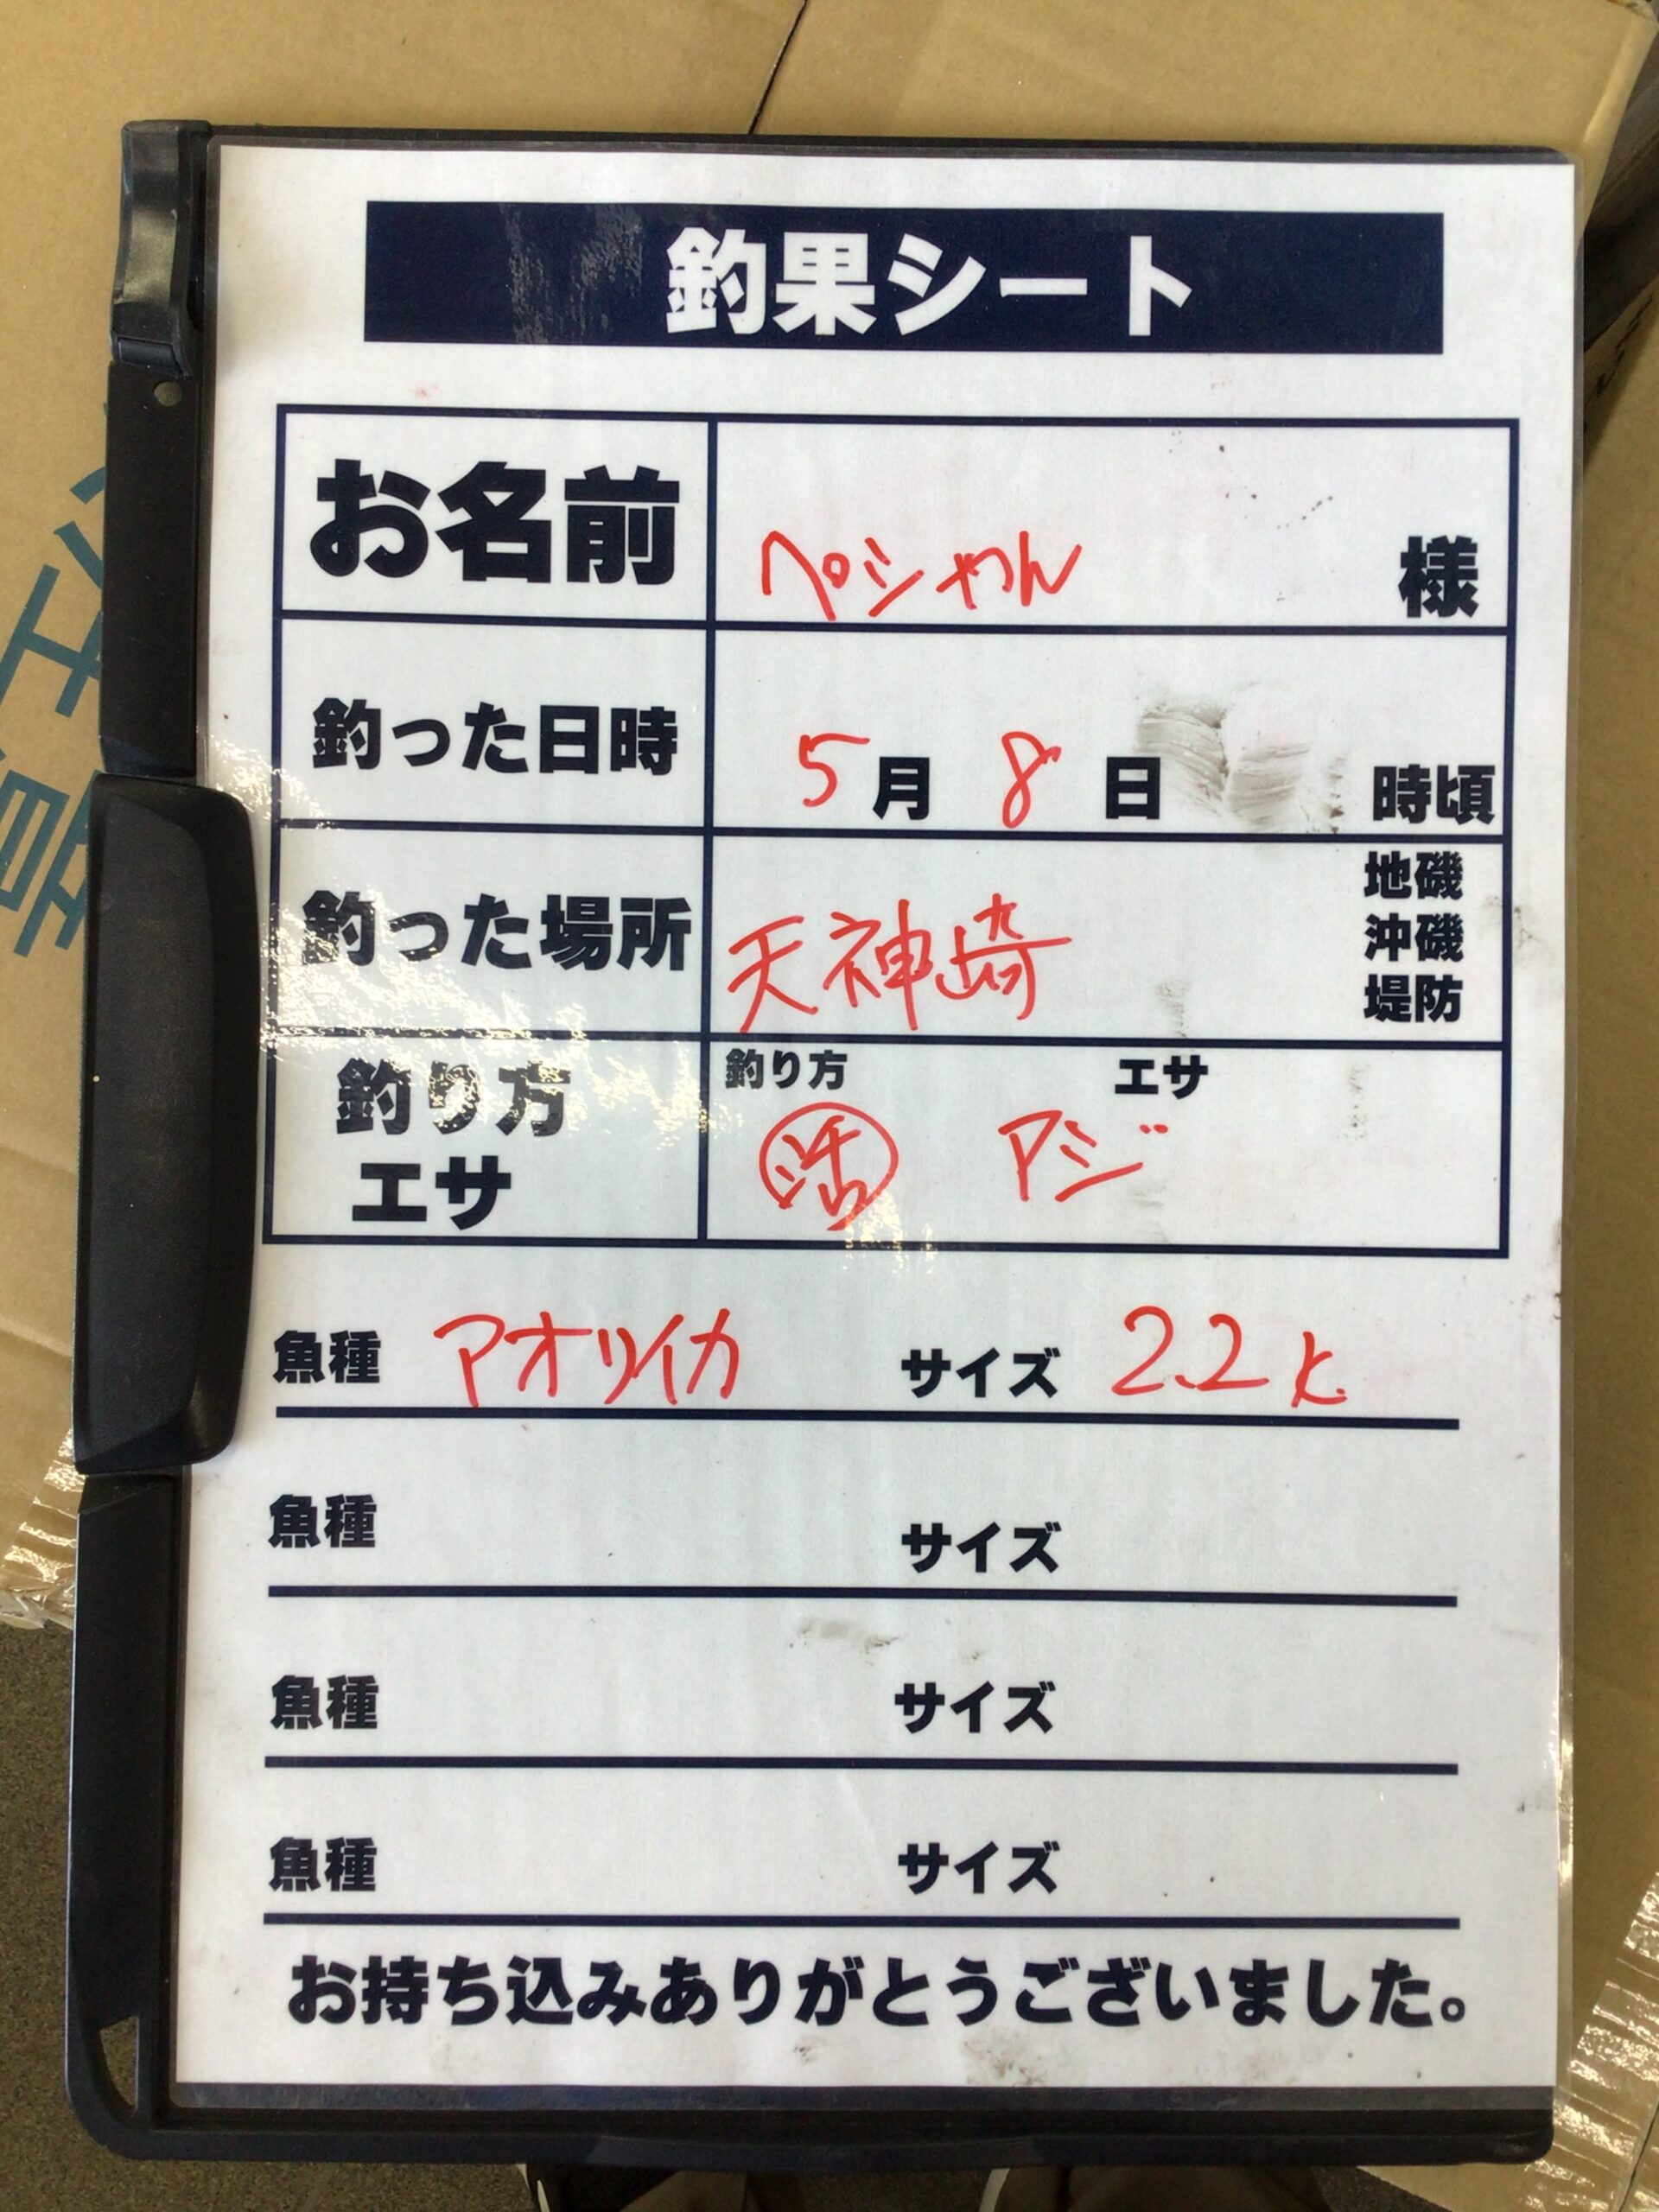 釣果シート
お名前 ペシやん 様
釣った日時 5月 8日 時頃
釣った場所 天神崎 地磯 沖磯 堤防
釣り方 エサ
釣り方 エサ
活 アジ
魚種 アオリイカ サイズ 2.2k
魚種 サイズ
魚種 サイズ
魚種 サイズ
お持ち込みありがとうございました。